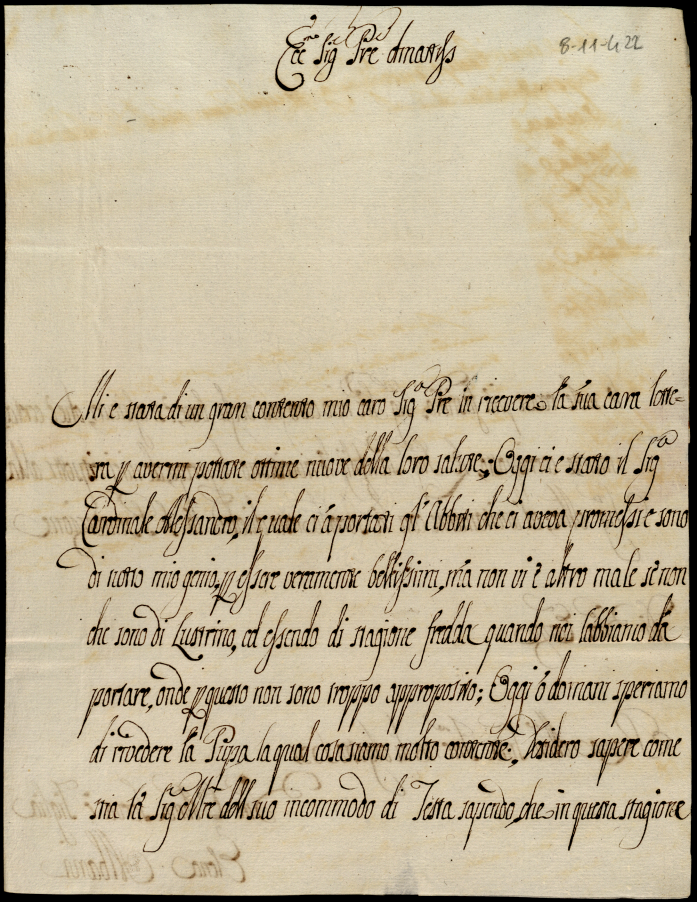 Ecc.mo Sig.e P̃re Amatiss
8-11-422
Mi e stata di un gran contento mio caro Sig.e P̃re in ricevere la sua cara lette=
ra p avermi portate ottime nuove della loro salute; Oggi ci e stato il Sig.e
Cardinale Alessandro, il quale ci à portati gl' Abbiti che ci aveva promessi e sono
di tutto mio genio, p essere veramente bellissimi, mà non vi è altro male sè non
che sono di Lustrino, ed essendo di stagione fredda quando noi l'abbiamo dà
portare, onde p questo non sono troppo approposito; Oggi ò domani speriamo
di rivedere la Puppa la qual cosa siamo molto contente; Desidero sapere come
stia la Sig.e Mre dell suo incommodo di Testa sapendo che in questa stagione